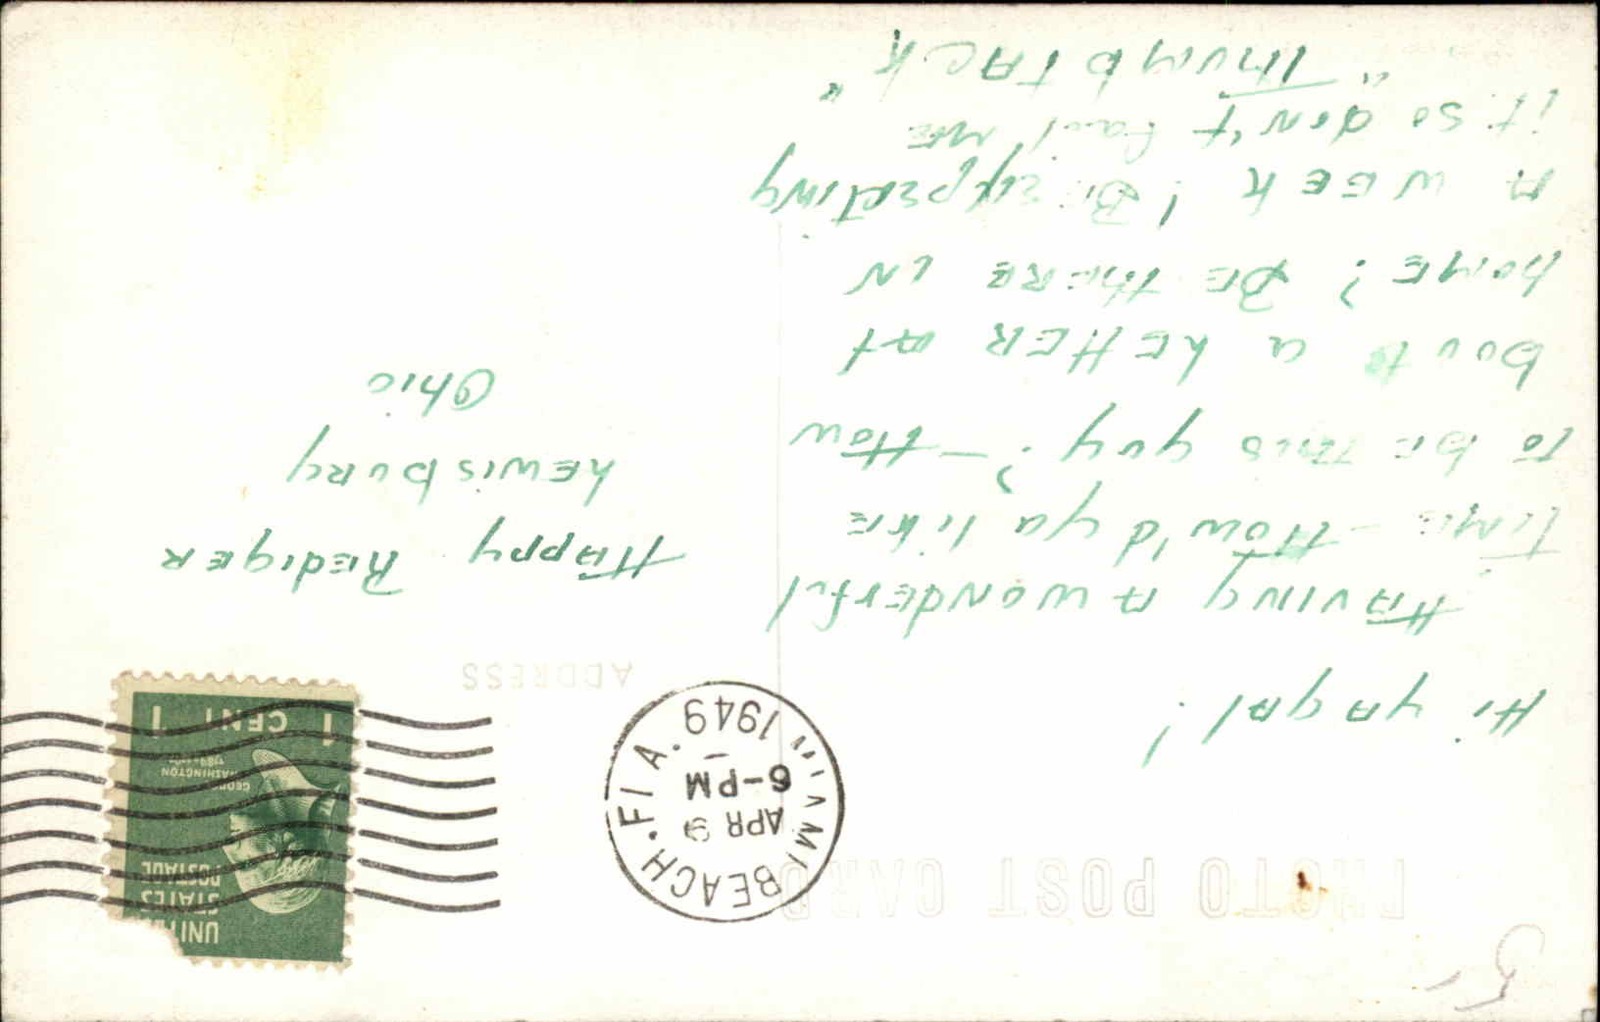 PHOTO POST CARD
Hi ya gal!
Having a wonderful
time - How'd ya like
to be this guy? - How
bout a letter at
home? Be there in
a week! Be expecting
it so don't fail me
"Thumb Tack"
MIAMI BEACH. FLA.
APR 9
6-PM
1949
UNITED
STATES
POSTAGE
GEORGE
WASHINGTON
1 CENT 1
ADDRESS
Happy Rediger
Lewisburg
Ohio